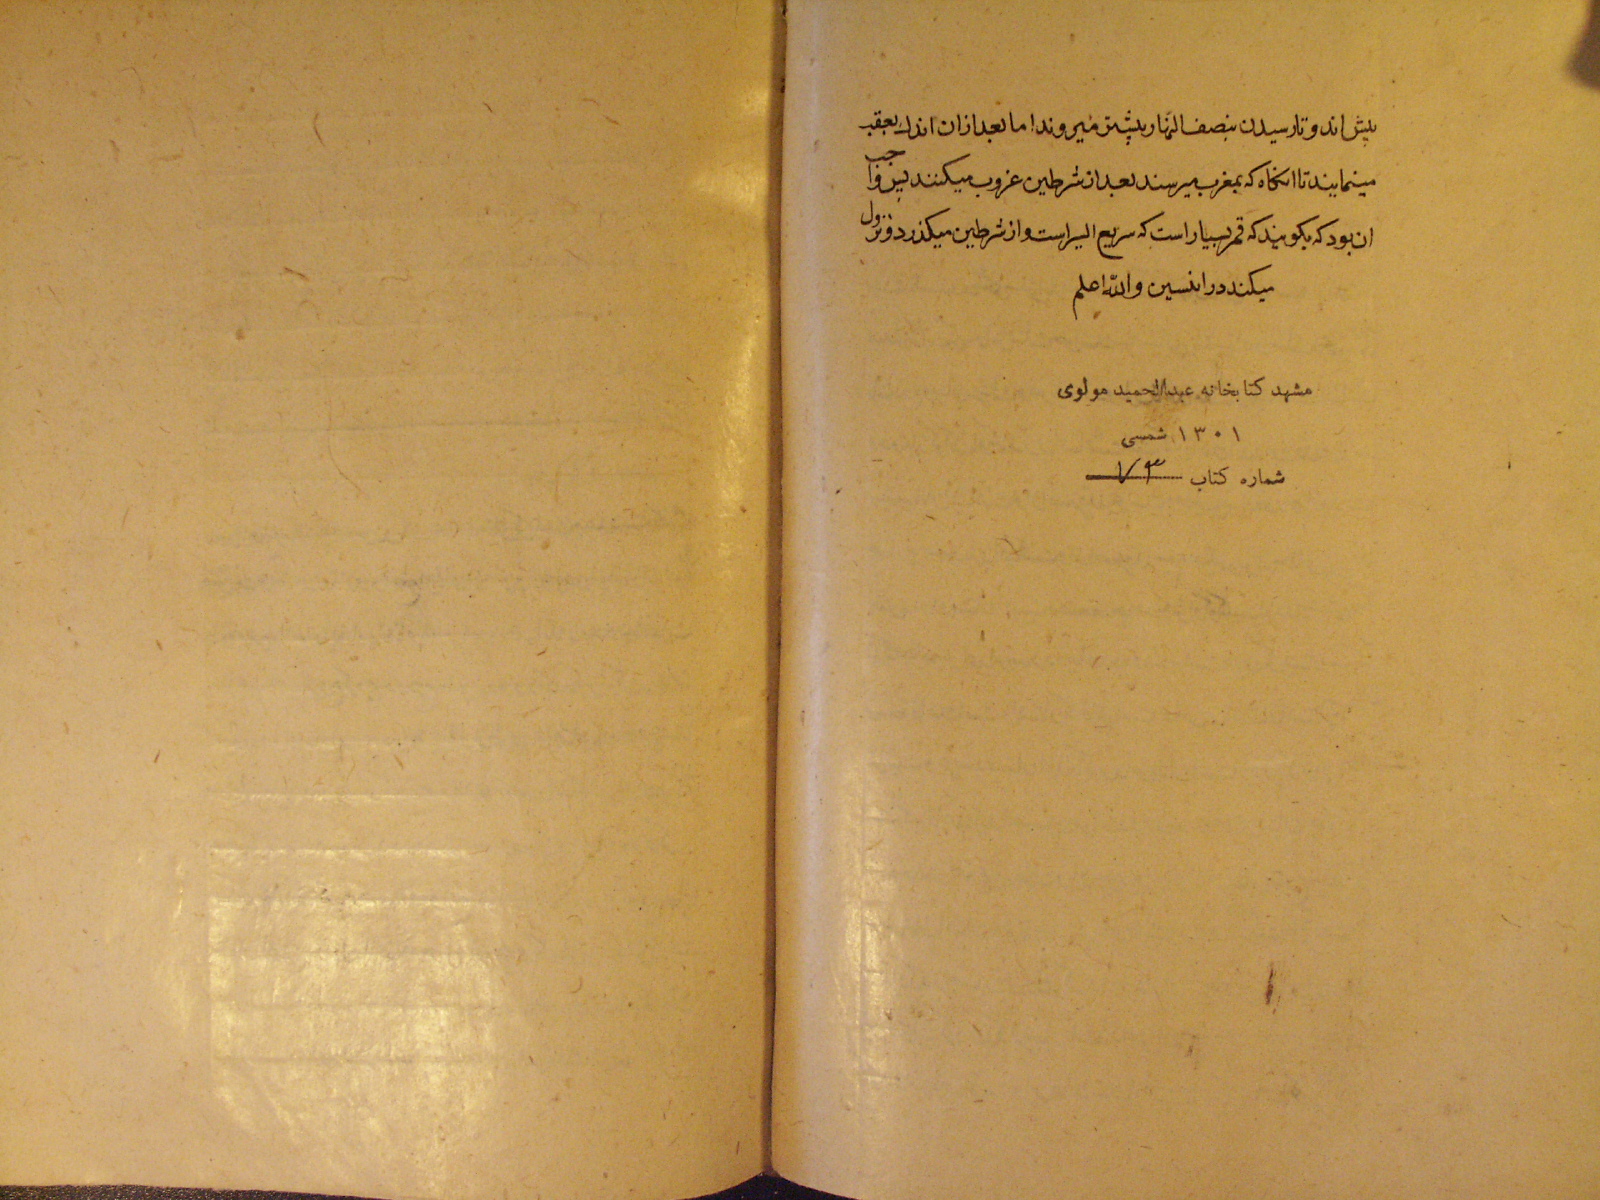 پیش اند و تا رسیدن بنصف النهار پیشتر میروند اما بعد از ان اندك بعقب
مینمایند تا انکاه که بمغرب میرسند بعد از شرطین غروب میکنند پس واجب
ان بود که بکویند که قمر بسیار است که سریع السیر است و از شرطین میکذرد و نزول
میکند در انسین والله اعلم
مشهد کتابخانه عبدالحمید مولوی
۱۳۰۱ شمسی
شماره کتاب ۷۳